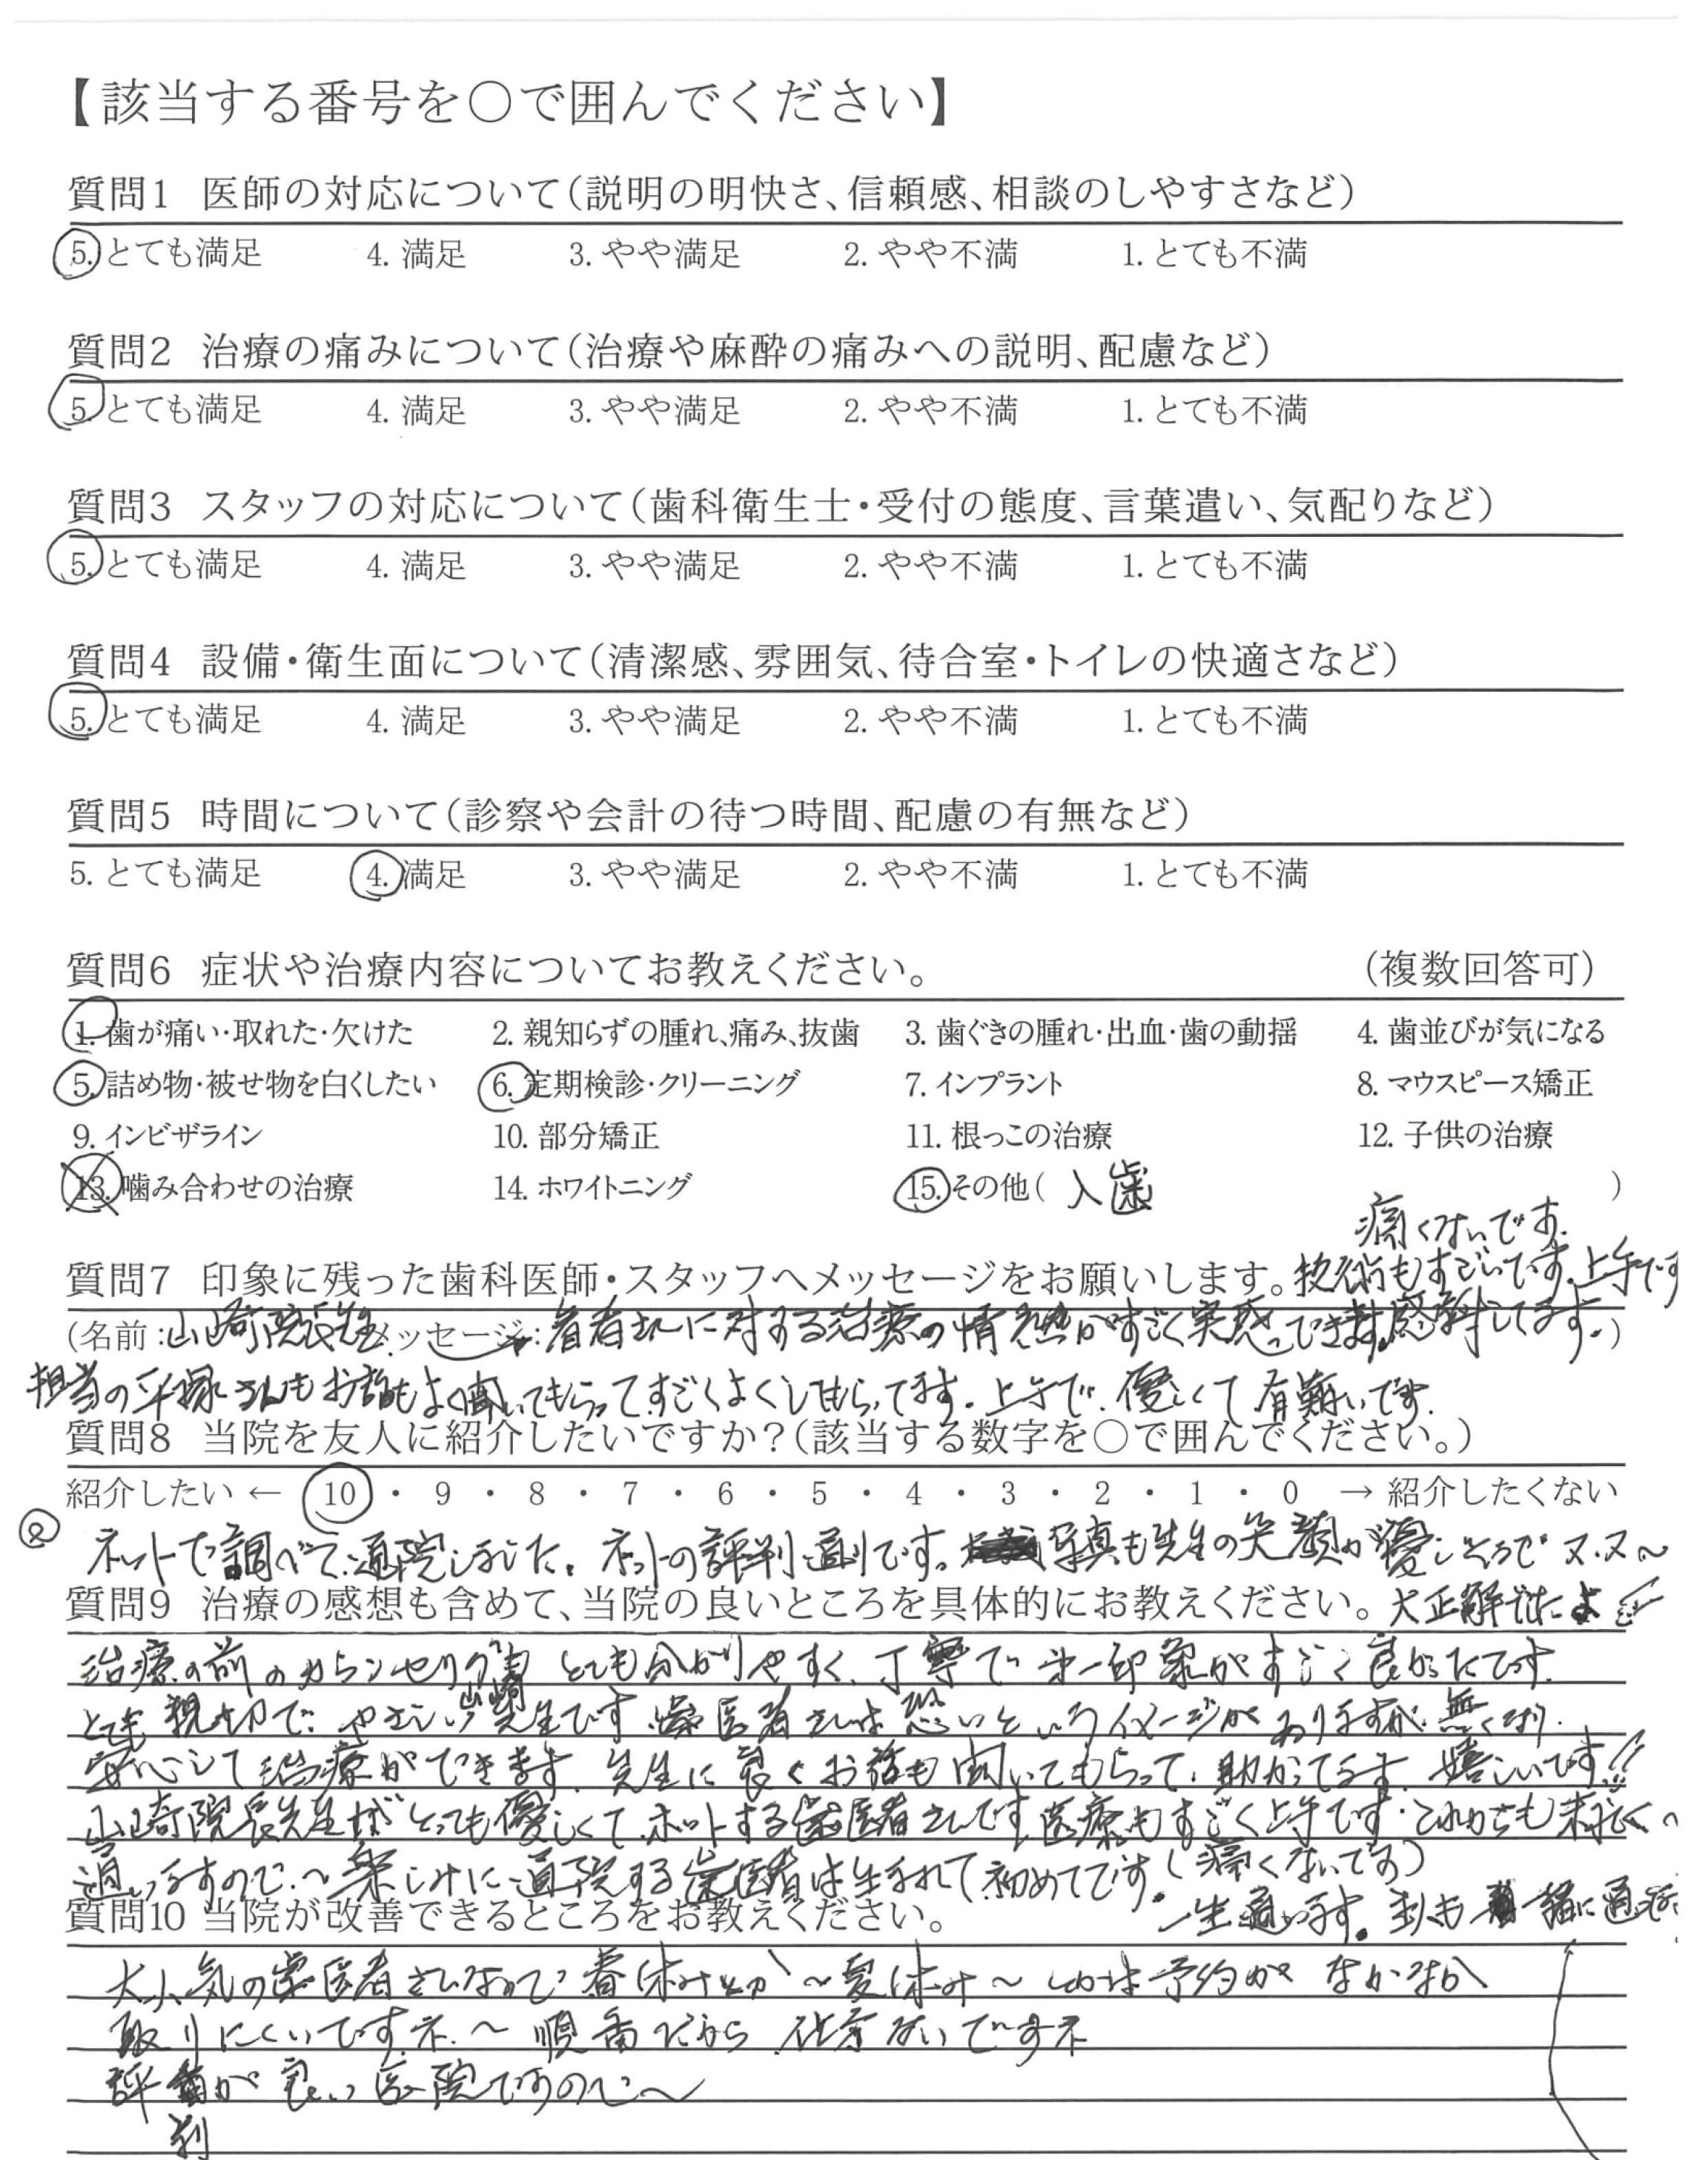 【該当する番号を○で囲んでください】
質問1 医師の対応について(説明の明快さ、信頼感、相談のしやすさなど)
5. とても満足 4. 満足 3. やや満足 2. やや不満 1. とても不満
質問2 治療の痛みについて(治療や麻酔の痛みへの説明、配慮など)
5. とても満足 4. 満足 3. やや満足 2. やや不満 1. とても不満
質問3 スタッフの対応について(歯科衛生士・受付の態度、言葉遣い、気配りなど)
5. とても満足 4. 満足 3. やや満足 2. やや不満 1. とても不満
質問4 設備・衛生面について(清潔感、雰囲気、待合室・トイレの快適さなど)
5. とても満足 4. 満足 3. やや満足 2. やや不満 1. とても不満
質問5 時間について(診察や会計の待つ時間、配慮の有無など)
5. とても満足 4. 満足 3. やや満足 2. やや不満 1. とても不満
質問6 症状や治療内容についてお教えください。 (複数回答可)
1. 歯が痛い・取れた・欠けた 2. 親知らずの腫れ、痛み、抜歯 3. 歯ぐきの腫れ・出血・歯の動揺 4. 歯並びが気になる
5. 詰め物・被せ物を白くしたい 6. 定期検診・クリーニング 7. インプラント 8. マウスピース矯正
9. インビザライン 10. 部分矯正 11. 根っこの治療 12. 子供の治療
13. 噛み合わせの治療 14. ホワイトニング 15. その他( 入歯 )
痛くないです.
質問7 印象に残った歯科医師・スタッフへメッセージをお願いします。技術もすごいです.上手です
(名前:山崎院長先生 メッセージ: 患者さんに対する治療の情熱がすごく実感できます。感謝してます。)
担当の平塚さんもお話もよく聞いてもらってすごくよくしてもらってます。上手で.優しくて有難いです.
質問8 当院を友人に紹介したいですか?(該当する数字を○で囲んでください。)
紹介したい ← 10 ・ 9 ・ 8 ・ 7 ・ 6 ・ 5 ・ 4 ・ 3 ・ 2 ・ 1 ・ 0 → 紹介したくない
ネットで調べて.通院しました。ネットの評判通りです。写真も先生の笑顔が優しそうで
質問9 治療の感想も含めて、当院の良いところを具体的にお教えください。大正解でしたよ
治療の前のカウンセリングも とても分かりやすく、丁寧で 第一印象がすごく良かったです.
とても親切で.やさしい山崎先生です.歯医者さんは恐いというイメージがありますが.無くなり.
安心して治療ができます.先生に良くお話も聞いてもらって.助かってます.嬉しいです!!
山崎院長先生がとっても優しくて.ホットする歯医者さんです.医療もすごく上手です.これからも末永く〜
通いますので.〜楽しみに通院する歯医者は生まれて.初めてです。(痛くないです)
質問10 当院が改善できるところをお教えください。 一生通います。
大人気の歯医者さんなので 春休みとか〜夏休み〜とかは予約がなかなか
取りにくいですネ.〜順番だから.仕方ないですネ
評判が良い医院ですので〜